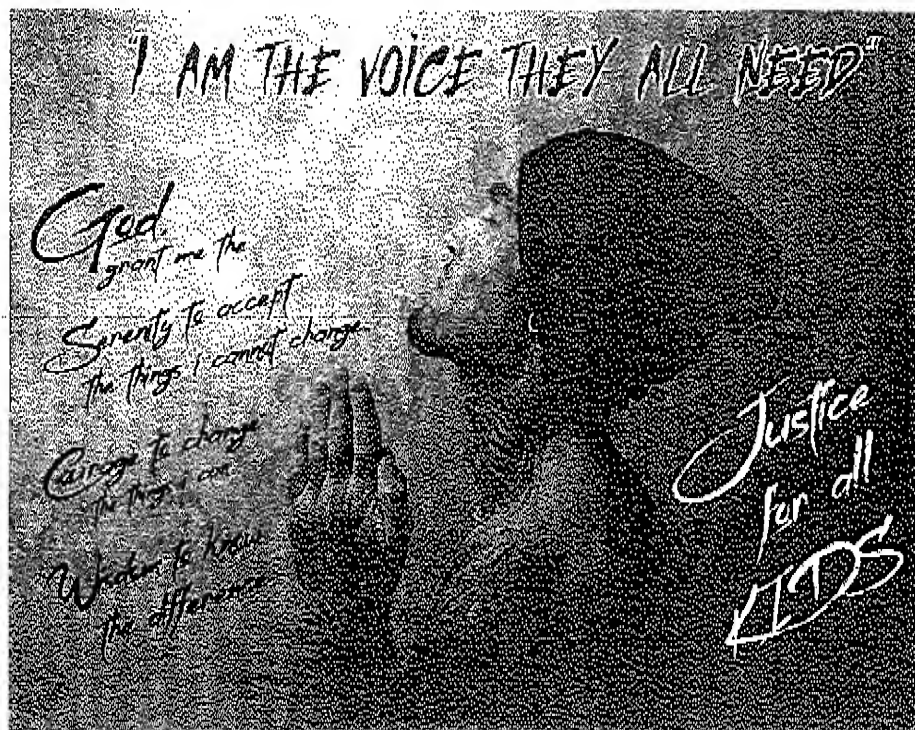 "I AM THE VOICE THEY ALL NEED"
God
grant me the
Serenity to accept
the things i cannot change
Courage to change
the things i can
Wisdom to know
the difference
Justice
for all
KIDS